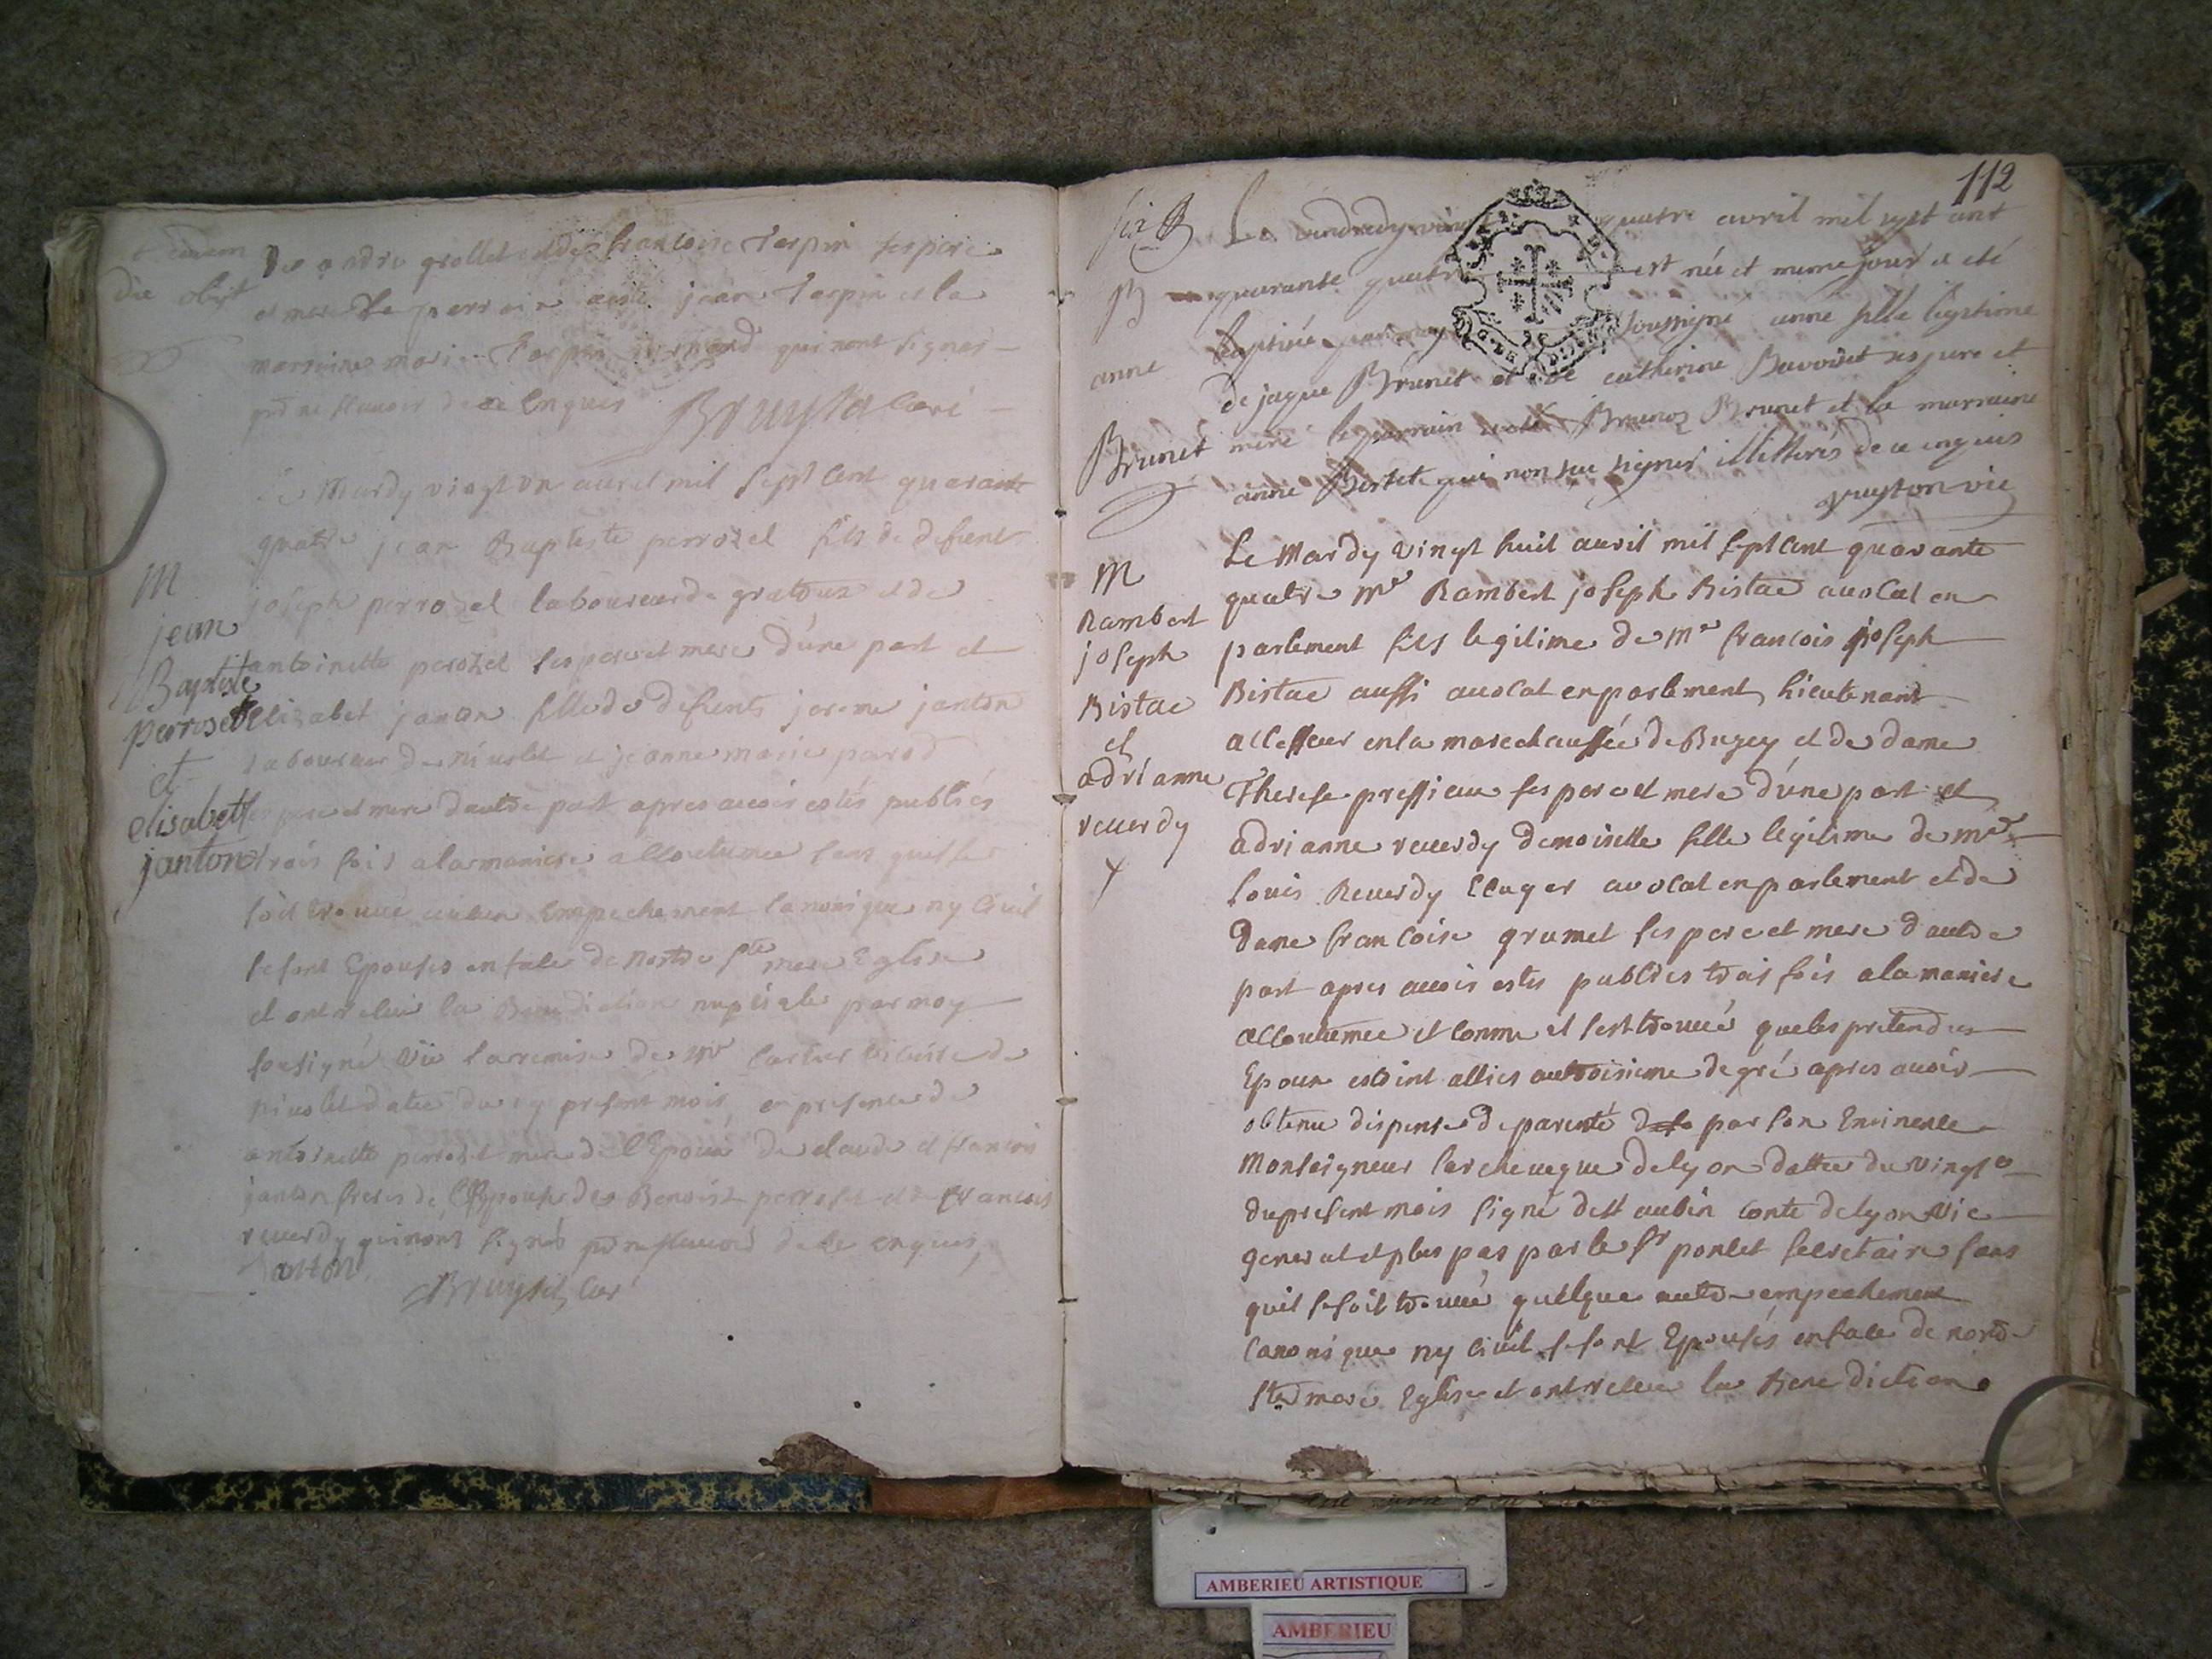 die obijt
de andre grollet et de francoise Tarpin ses pere
et mere le perrain a esté jean Tarpin et la
marraine marie Tarpin qui nont signés
de ce enquis Bruyset Curé
Le Mardy vingt un avril mil sept cent quarante
quatre jean Baptiste perrozet fils de defient
joseph perrozet laboureur de gratoux et de
antoinette perozet ses pere et mere d'une part et
elizabet janton fille de defients jerome janton
laboureur de nivolet et jeanne marie parod
ses pere et mere dautre part apres avoir estés publiés
trois fois a la maniere accoutumee sans quil se
soit trouvé aucun Empechement canonique ny Civil
se sont Epousés en face de nostre Ste mere Eglise
et ont receu la Benediction nuptiale par moy
sousigné vû la remise de mr vicaire de
nivolet datée du present mois en presence de
antoinette perrozet mere de l'Epoux de claude et francois
janton freres de l'Epouse de Benoist perroset et de francois
reverdy qui nont signés de ce enquis
Janton
Bruyset Cur
M
jean
Baptiste
perroset
et
elisabett
janton
112
Le vendredy vingt quatre avril mil sept cent
quarante quatre est née et meme jour a eté
baptisée par moy soussigné anne fille légitime
de jaque Brunet et de catherine Bavoüet ses pere et
mere le parrain a eté Brunet et la marraine
anne Bertet qui non sçu signer illitterés de ce enquis
Bruyset vic
B
anne
Brunet
M
Rambert
joseph
Bistac
et
adrianne
reverdy
Le Mardy vingt huit avril mil sept cent quarante
quatre Mr Rambert joseph Bistac avocat en
parlement fils legitime de Mr francois joseph
Bistac aussi avocat en parlement, lieutenant
assesseur en la marechaussée de Bugey et de dame
Therese pressieux ses pere et mere d'une part et
adrianne reverdy demoiselle fille legitime de mr
Louis Reverdy Ecuyer avocat en parlement et de
dame francoise grumet ses pere et mere d'autre
part apres avoir estés publiés trois fois a la maniere
accoutumee et comme il sest trouvé que les pretendus
Epoux estoint alliés au troisieme degré apres avoir
obtenu dispense de parenté par son Eminence
Monseigneur l'archeveque de lyon dattée du vingt
du present mois signé de st aubin conte de lyon vic
general et plus bas par le sr ponlet secretaire sans
quil se soit trouvé quelque autre empechement
canonique ny civil se sont Epousés en face de nostre
Ste mere Eglise et ont receu la Benediction
AMBERIEU ARTISTIQUE
AMBERIEU